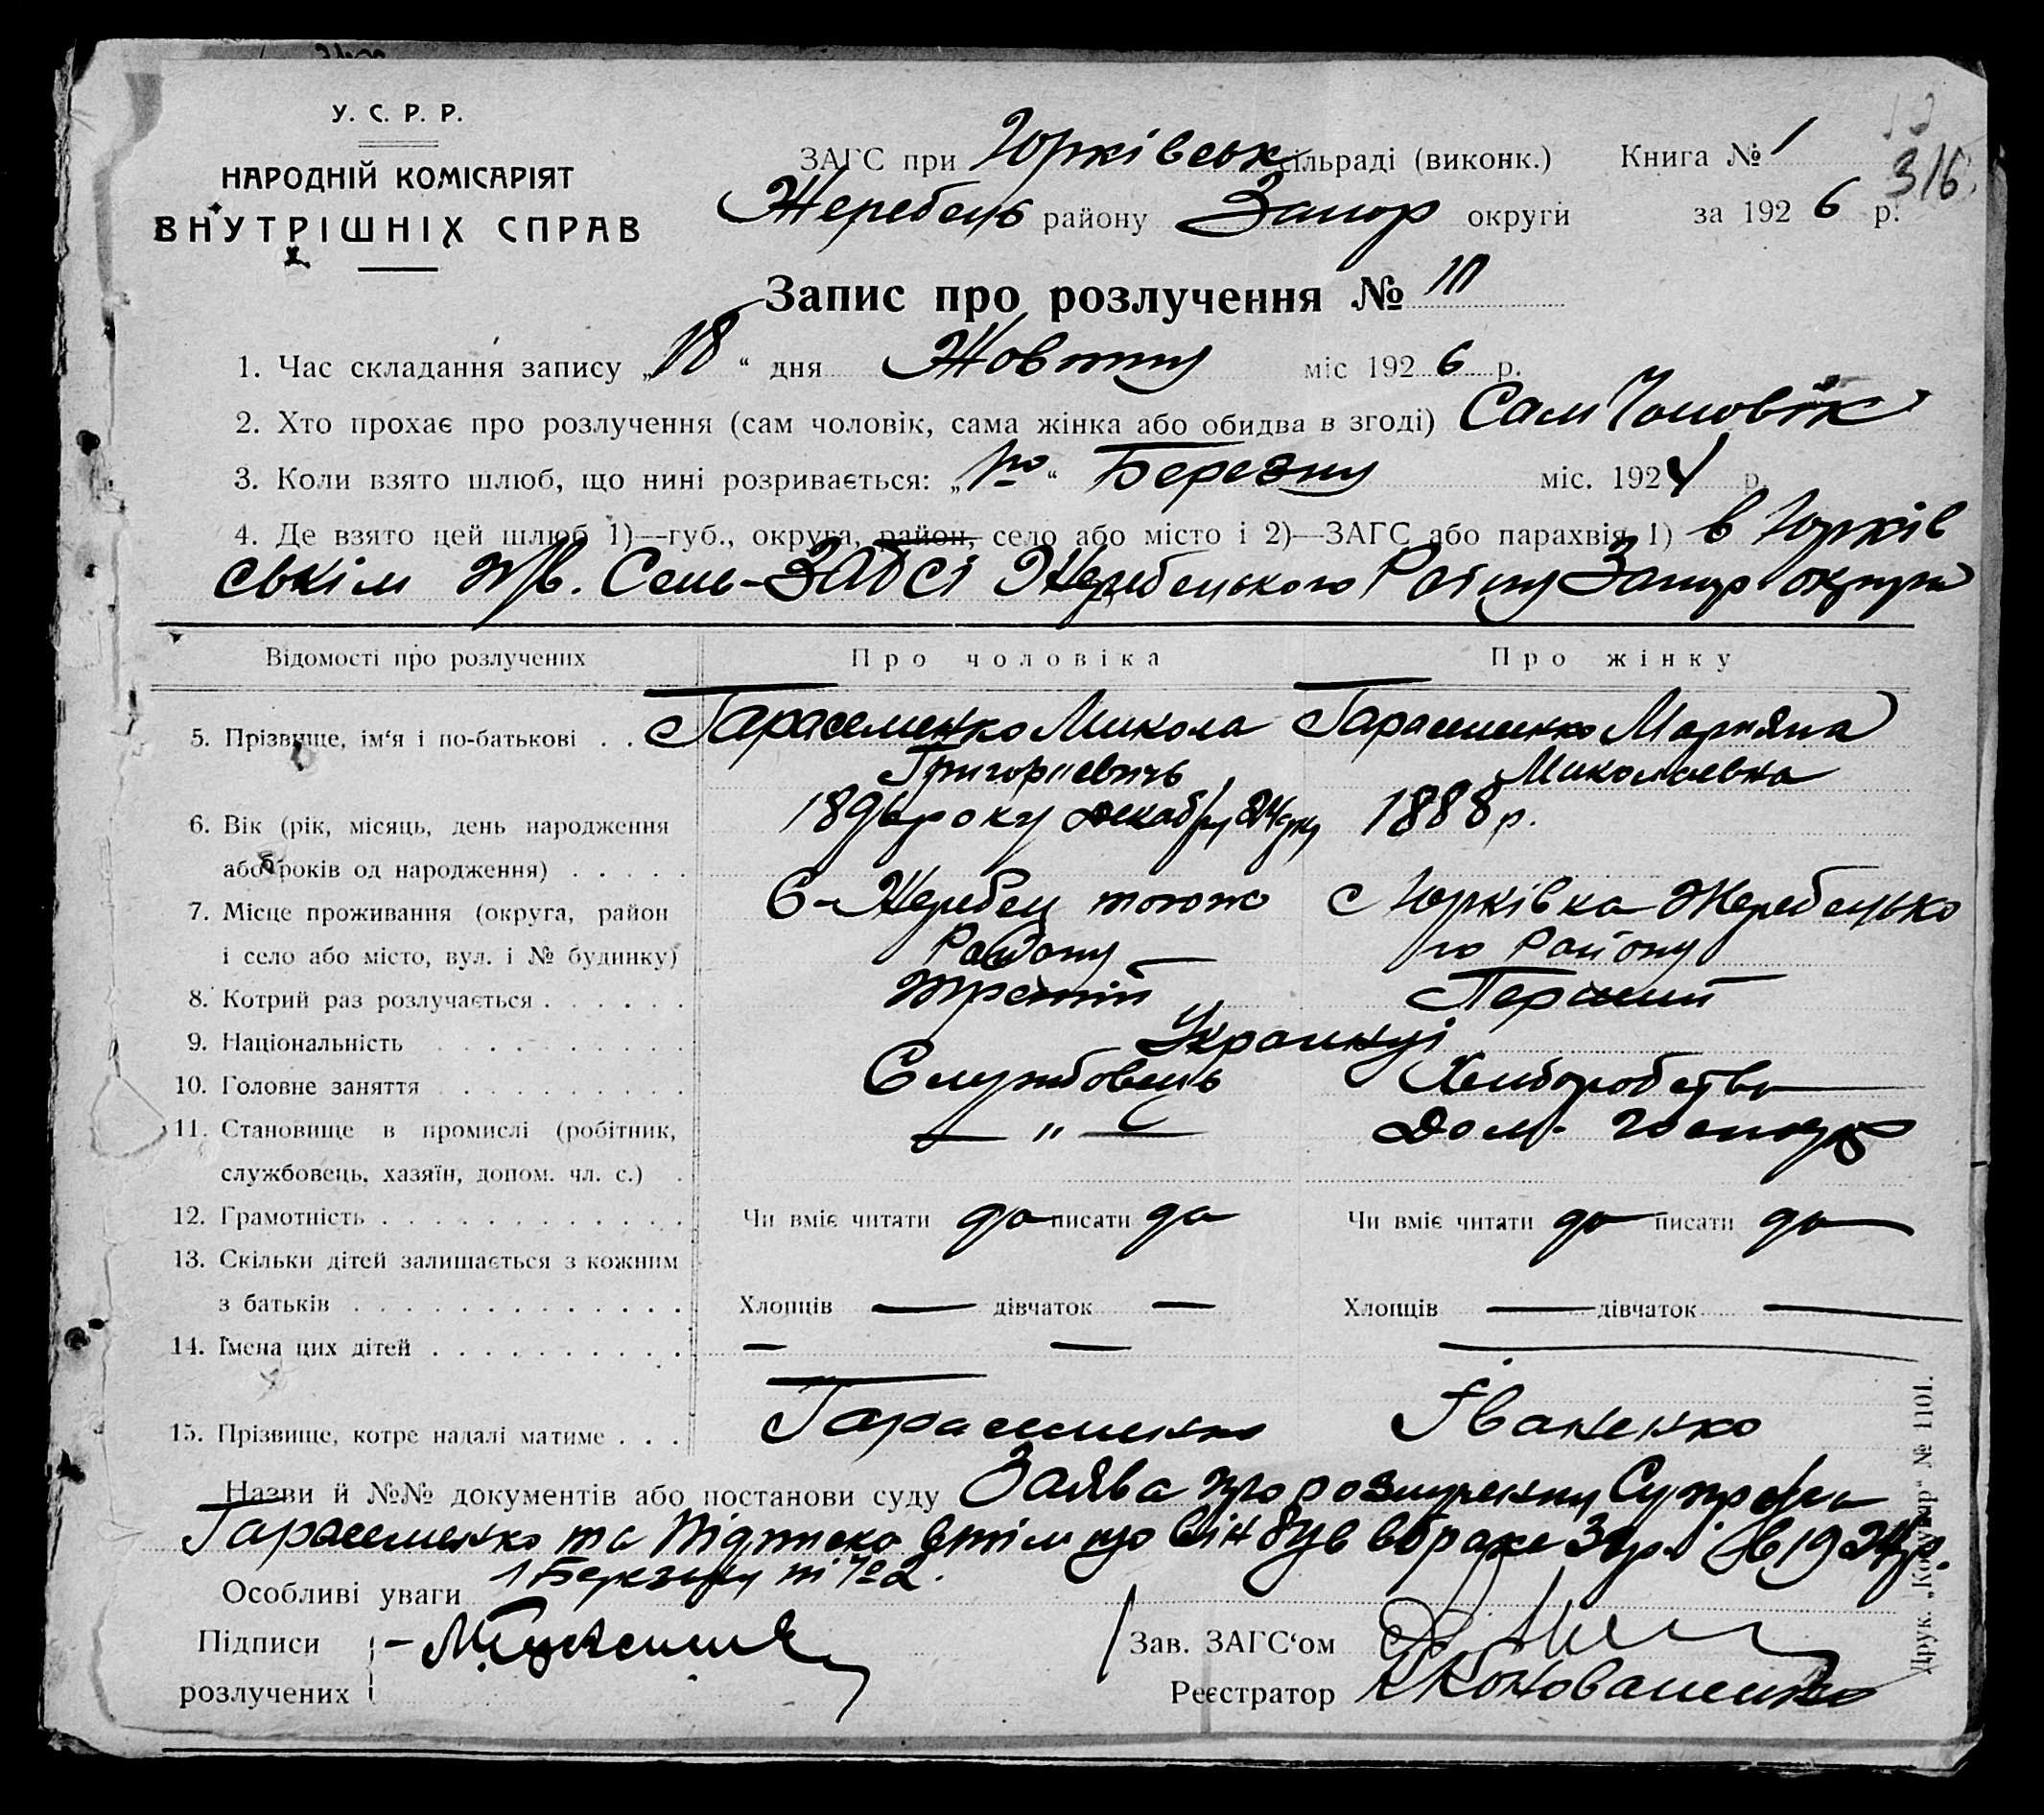 У. С. Р. Р.
НАРОДНІЙ КОМІСАРІЯТ
ВНУТРІШНІХ СПРАВ
316.
ЗАГС при Юрківськ сільраді (виконк.) Книга № 1
Жеребець району Запор округи за 1926 р.
Запис про розлучення № 10
1. Час складання запису „18“ дня Жовтня міс 1926 р.
2. Хто прохає про розлучення (сам чоловік, сама жінка або обидва в згоді) Сам Чоловік
3. Коли взято шлюб, що нині розривається: „1го“ Березня міс. 1924 р.
4. Де взято цей шлюб 1)—губ., округа, район, село або місто і 2)—ЗАГС або парахвія 1) в Юрків
ськім Сель-ЗАГСі Жеребецького Району Запор округи
Відомості про розлучених Про чоловіка Про жінку
5. Прізвище, ім‘я і по-батькові . . Гарасеменко Микола Гарасеменко Марияна
Григориевичь Миколаевна
6. Вік (рік, місяць, день народження 1896 року Декабря 24 дня 1888 р.
або років од народження) . . . . .
7. Місце проживання (округа, район С-Жеребец тогож с Юрківка Жеребецько
і село або місто, вул. і № будинку) Району го Району
8. Котрий раз розлучається . . . . . . третій Перший
9. Національність . . . . . . . . . Украинці
10. Головне заняття . . . . . . . . . Службовець Хлиборобство
11. Становище в промислі (робітник, — „ — Дом.
службовець, хазяїн, допом. чл. с.) .
12. Грамотність . . . . . . . . . . . . Чи вміє читати да писати да Чи вміє читати да писати да
13. Скільки дітей залишається з кожним
з батьків . . . . . . . . . . . . . Хлопців — дівчаток — Хлопців — дівчаток —
14. Імена цих дітей . . . . . . . . . . — — —
15. Прізвище, котре надалі матиме . . . Гарасеменко Іваненко
Назви й №№ документів або постанови суду Заява про розлучення
Гарасеменко та Підписка втім що він був вбраке Зарег в 1924 р.
Особливі уваги 1 Березня №2.
Підписи Зав. ЗАГС‘ом
розлучених Реєстратор Коноваленко
Друк. № 1101.